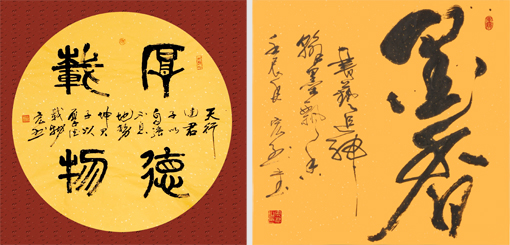 厚德
載物
天行
健君
子以
自强
不息
地势
坤君
子以
厚德
載物
墨香
書藝追神
翰墨飘香
壬辰